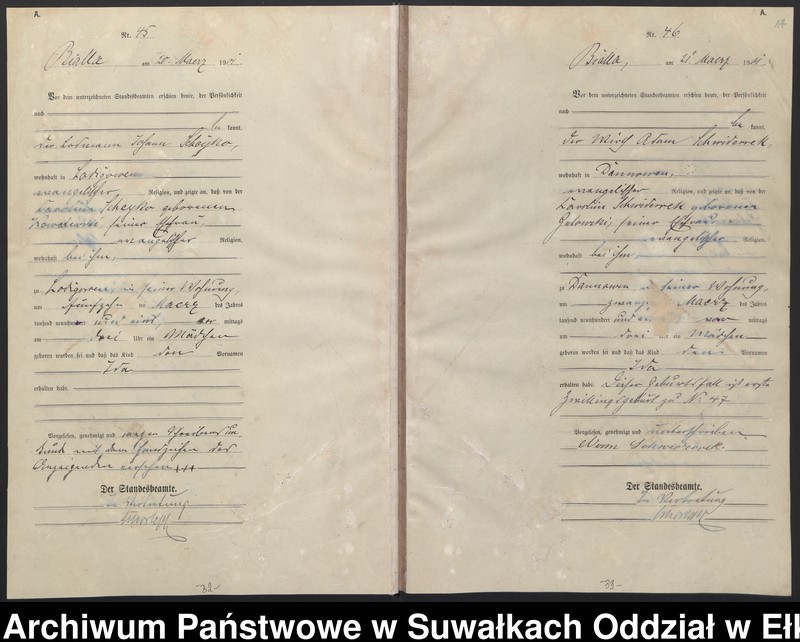 A.
Nr. 45
Bialla, am 20. Maerz 1901.
Vor dem unterzeichneten Standesbeamten erschien heute, der Persönlichkeit
nach
be kannt,
der Losmann Johann
wohnhaft in
evangelischer Religion, und zeigte an, daß von der
geborenen
seiner Ehefrau,
evangelischer Religion,
wohnhaft bei ihm,
zu in seiner Wohnung,
am fünfzehn ten Maerz des Jahres
tausend neunhundert und eins, vor mittags
um drei Uhr ein Mädchen
geboren worden sei und daß das Kind den Vornamen
Ida
erhalten habe.
Vorgelesen, genehmigt und wegen Schreibensun-
kunde mit dem Handzeichen des
Anzeigenden versehen +++
Der Standesbeamte.
In Vertretung
32
A.
Nr. 46
Bialla, am 21. Maerz 1901.
Vor dem unterzeichneten Standesbeamten erschien heute, der Persönlichkeit
nach
be kannt,
der Wirth Adam
wohnhaft in Dannowen,
evangelischer Religion, und zeigte an, daß von der
Karoline geborenen
seiner Ehefrau
evangelischer Religion,
wohnhaft bei ihm,
zu Dannowen in seiner Wohnung,
am Maerz des Jahres
tausend neunhundert und mittags
um drei Uhr ein Mädchen
geboren worden sei und daß das Kind den Vornamen
Ida
erhalten habe. Dieser Geburtsfall ist erste
Zwillingsgeburt zu Nr 47
Vorgelesen, genehmigt und unterschrieben
Der Standesbeamte.
In Vertretung
33
Archiwum Państwowe w Suwałkach Oddział w Ełk